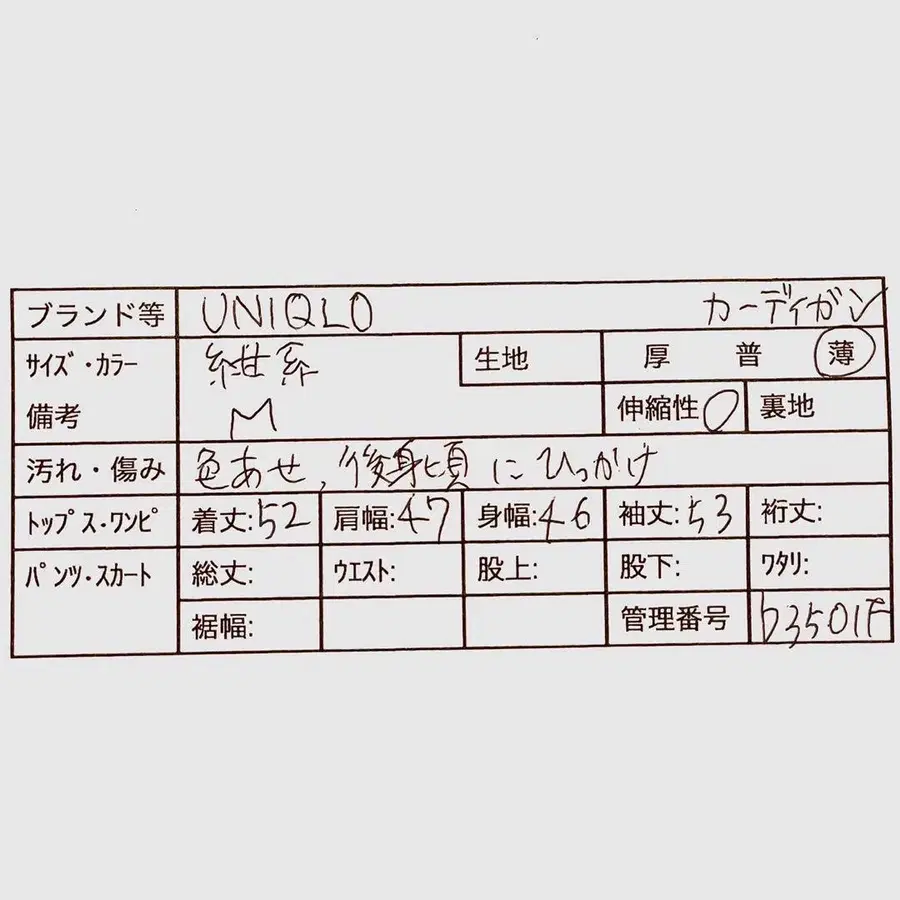 ブランド等 UNIQLO カーディガン
サイズ・カラー 紺系 生地 厚 普 薄
備考 M 伸縮性○ 裏地
汚れ・傷み 色あせ、後身頃にひっかけ
トップス・ワンピ 着丈:52 肩幅:47 身幅:46 袖丈:53 裄丈:
パンツ・スカート 総丈: ウエスト: 股上: 股下: ワタリ:
裾幅: 管理番号